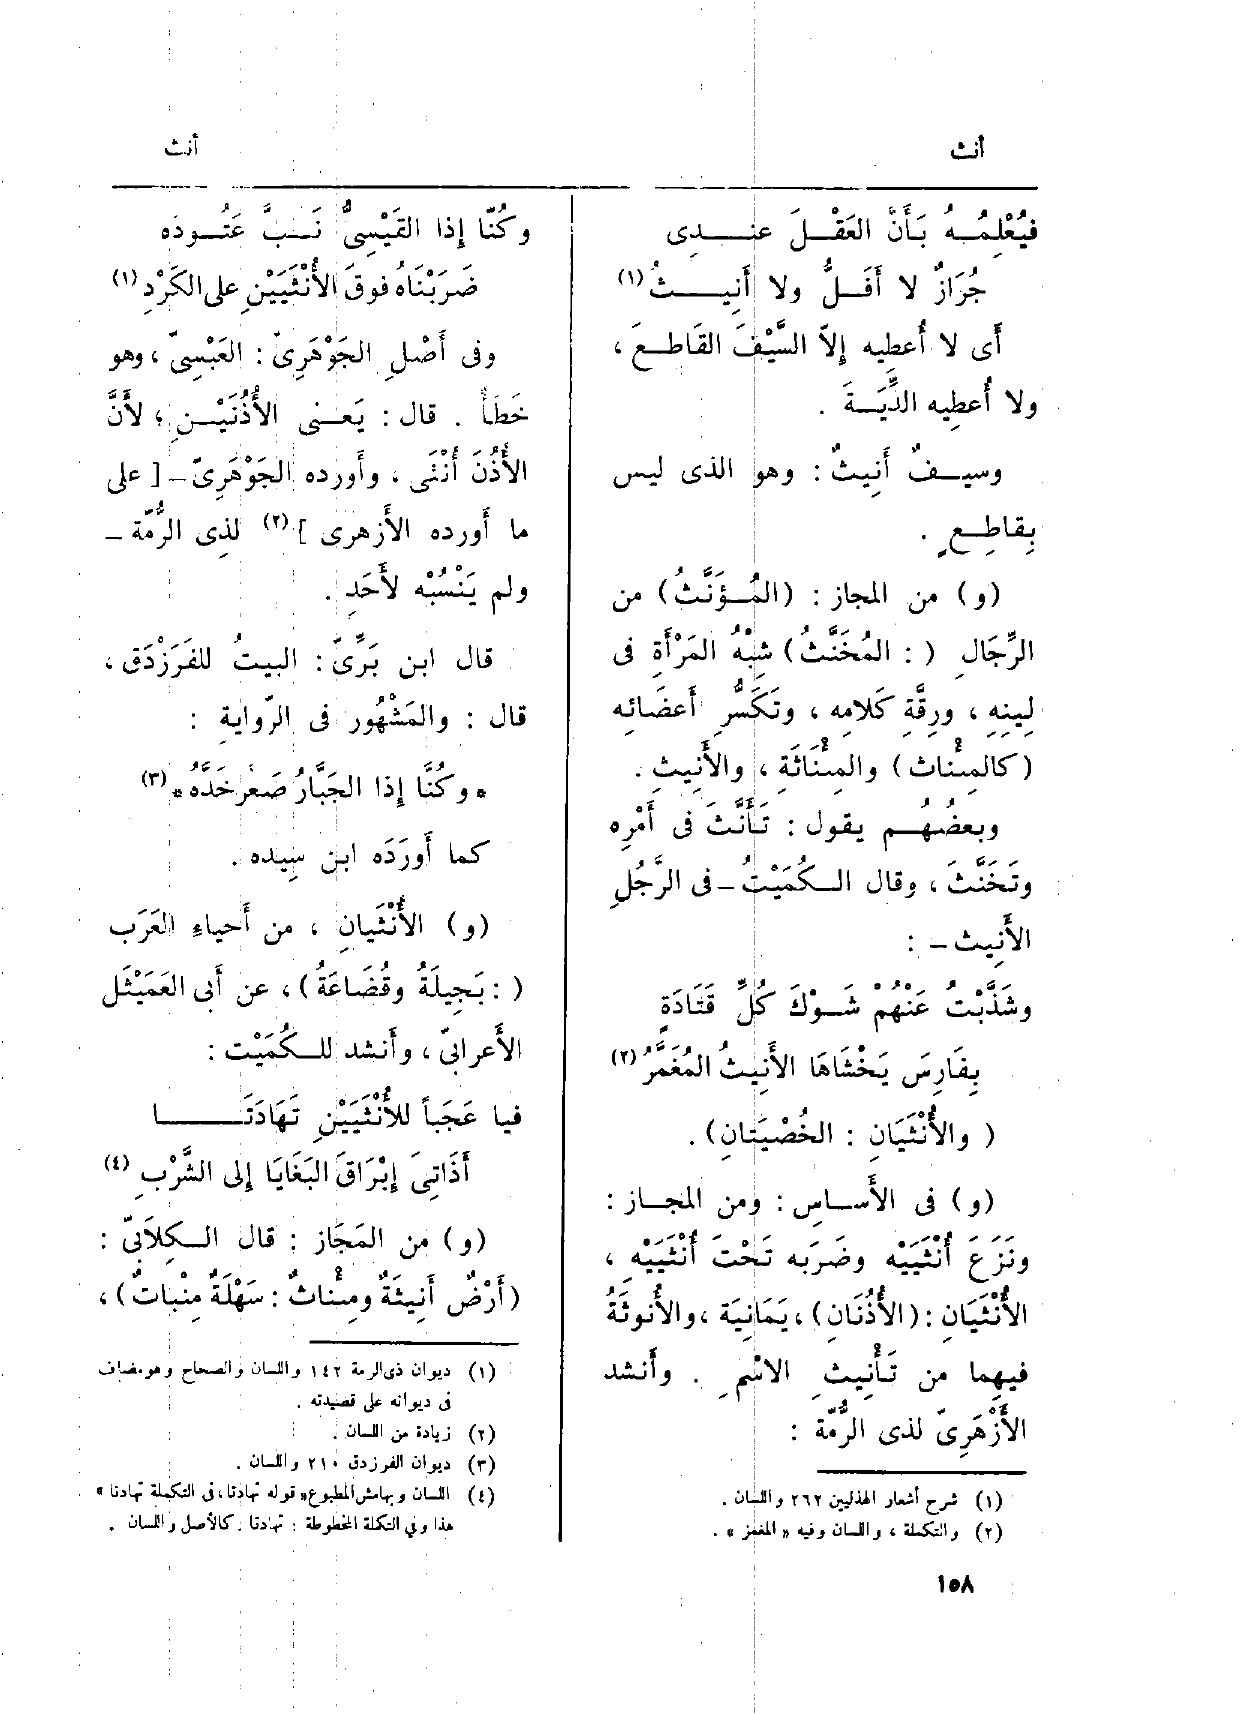 أنث
أنث
فيُعْلِمُـهُ بَأَنَّ العَقْـلَ عنـدى
جُرَازٌ لا أَفَـلُّ ولا أَنِيـثُ (١)
أى لا أُعطِيه إِلاّ السَّيْفَ القَاطِـعَ ،
ولا أُعطِيه الدِّيَـةَ .
وسيـفٌ أَنِيثٌ : وهو الذى ليس
بِقاطِـعٍ .
(و) من المجاز : (المُـؤَنَّثُ) من
الرِّجَالِ ( : المُخَنَّثُ) شِبْهُ المَرْأَةِ فى
لِينِهِ ، ورِقَّةِ كَلَامِه ، وتَكَسُّرِ أَعضَائه
(كالمِئْناث) والمِئْنَاثَة ، والأَنِيثِ .
وبعضُهُـم يقول : تَـأَنَّثَ فى أَمْرِه
وتَخَنَّثَ ، وقال الـكُمَيْتُ - فى الرَّجُلِ
الأَنِيث - :
وشَذَّبْتُ عَنْهُمْ شَـوْكَ كُلِّ قَتَادَةٍ
بِفَارِسَ يَخْشَاهَا الأَنِيثُ المُغَمَّرُ (٢)
( والأُنْثَيَانِ : الخُصْيَتَانِ) .
(و) فى الأَسـاسِ : ومن المجـاز :
ونَزَعَ أُنْثَيَيْه وضَرَبَه تَحْتَ أُنْثَيَيْهِ ،
الأُنْثَيَانِ : (الأُذُنَان) ، يَمَانِيَة ، والأُنوثَةُ
فيهما من تَـأْنِيثِ الاسْمِ . وأَنشد
الأَزْهَرِىّ لذى الرُّمَّة :
(١) شرح أشعار الهذليين ٢٦٢ واللسان .
(٢) والتكملة ، واللسان وفيه « المغمز » .
وكُنَّا إِذا القَيْسِىُّ نَـبَّ عَتُـودُه
ضَرَبْنَاهُ فوقَ الأُنْثَيَيْنِ على الكَرْدِ (١)
وفى أَصْلِ الجَوْهَرِىّ : العَبْسِىّ ، وهو
خَطَأٌ . قال : يَعـنى الأُذُنَيْـنِ ؛ لأَنَّ
الأُذُنَ أُنْثَى ، وأَورده الجَوْهَرِىّ - [ على
ما أَورده الأَزهرى ] (٢) لذى الرُّمَّة -
ولم يَنْسُبْه لأَحَدٍ .
قال ابن بَرِّىّ : البيتُ للفَرَزْدَق ،
قال : والمَشْهُور فى الرِّواية :
* وكُنَّا إِذا الجَبَّارُ صَعَّرَ خَدَّهُ * (٣)
كما أَورَدَه ابن سِيده .
(و) الأُنْثَيانِ ، من أَحياءِ العَرَب
( : بَجِيلَةُ وقُضَاعَةُ) ، عن أَبى العَمَيْثَل
الأَعرابىّ ، وأَنشد للـكُمَيْت :
فيا عَجَباً للأُنْثَيَيْنِ تَهَادَتَـــا
أَذَاتِىَ إِبْرَاقَ البَغَايَا إِلى الشَّرْبِ (٤)
(و) من المَجَاز : قال الـكِلَابىّ :
(أَرْضٌ أَنِيثَةٌ ومِئْناثٌ : سَهْلَةٌ مِنْباتٌ) ،
(١) ديوان ذى الرمة ١٤٢ واللسان والصحاح وهو مضاف
فى ديوانه على قصيدته .
(٢) زيادة من اللسان .
(٣) ديوان الفرزدق ٢١٠ واللسان .
(٤) اللسان وبهامش المطبوع « قوله تهادتا ، فى التكملة تهادنا »
هذا وفي التكلة المخطوطة : تهادتا . كالأصل واللسان .
١٥٨